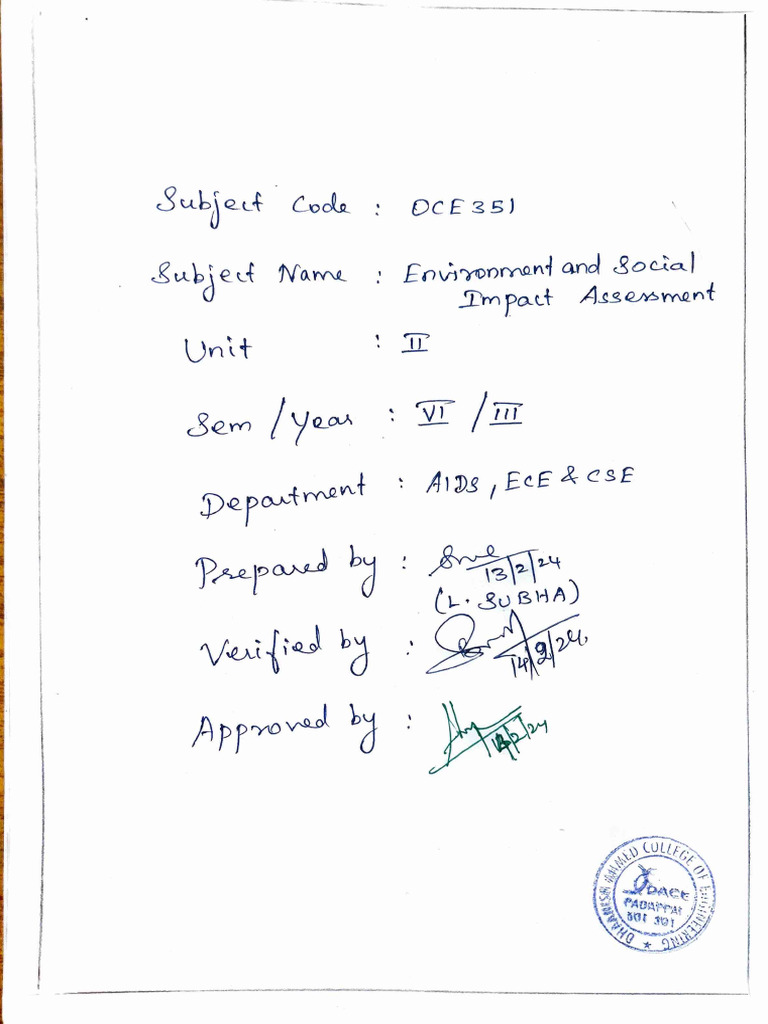 Subject Code : OCE351
Subject Name : Environment and Social
Impact Assessment
Unit : II
Sem / Year : VI / III
Department : AIDS, ECE & CSE
Prepared by :
13/2/24
(L. SUBHA)
Verified by :
14/2/24
Approved by :
/2/24
COLLEGE OF ENGINEERING
DACE
PADAPPAI
601 301